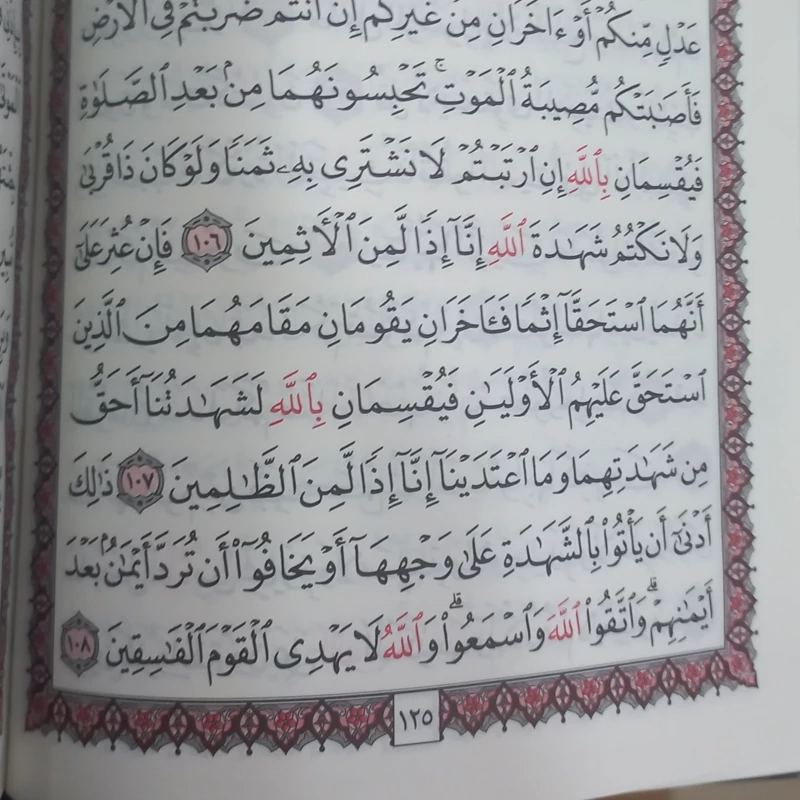 عَدۡلٖ مِّنكُمۡ أَوۡ ءَاخَرَانِ مِنۡ غَيۡرِكُمۡ إِنۡ أَنتُمۡ ضَرَبۡتُمۡ فِي ٱلۡأَرۡضِ
فَأَصَٰبَتۡكُم مُّصِيبَةُ ٱلۡمَوۡتِۚ تَحۡبِسُونَهُمَا مِنۢ بَعۡدِ ٱلصَّلَوٰةِ
فَيُقۡسِمَانِ بِٱللَّهِ إِنِ ٱرۡتَبۡتُمۡ لَا نَشۡتَرِي بِهِۦ ثَمَنٗا وَلَوۡ كَانَ ذَا قُرۡبَىٰ
وَلَا نَكۡتُمُ شَهَٰدَةَ ٱللَّهِ إِنَّآ إِذٗا لَّمِنَ ٱلۡأٓثِمِينَ ١٠٦ فَإِنۡ عُثِرَ عَلَىٰٓ
أَنَّهُمَا ٱسۡتَحَقَّآ إِثۡمٗا فَـَٔاخَرَانِ يَقُومَانِ مَقَامَهُمَا مِنَ ٱلَّذِينَ
ٱسۡتَحَقَّ عَلَيۡهِمُ ٱلۡأَوۡلَيَٰنِ فَيُقۡسِمَانِ بِٱللَّهِ لَشَهَٰدَتُنَآ أَحَقُّ
مِن شَهَٰدَتِهِمَا وَمَا ٱعۡتَدَيۡنَآ إِنَّآ إِذٗا لَّمِنَ ٱلظَّٰلِمِينَ ١٠٧ ذَٰلِكَ
أَدۡنَىٰٓ أَن يَأۡتُواْ بِٱلشَّهَٰدَةِ عَلَىٰ وَجۡهِهَآ أَوۡ يَخَافُوٓاْ أَن تُرَدَّ أَيۡمَٰنُۢ بَعۡدَ
أَيۡمَٰنِهِمۡۗ وَٱتَّقُواْ ٱللَّهَ وَٱسۡمَعُواْۗ وَٱللَّهُ لَا يَهۡدِي ٱلۡقَوۡمَ ٱلۡفَٰسِقِينَ ١٠٨
١٢٥